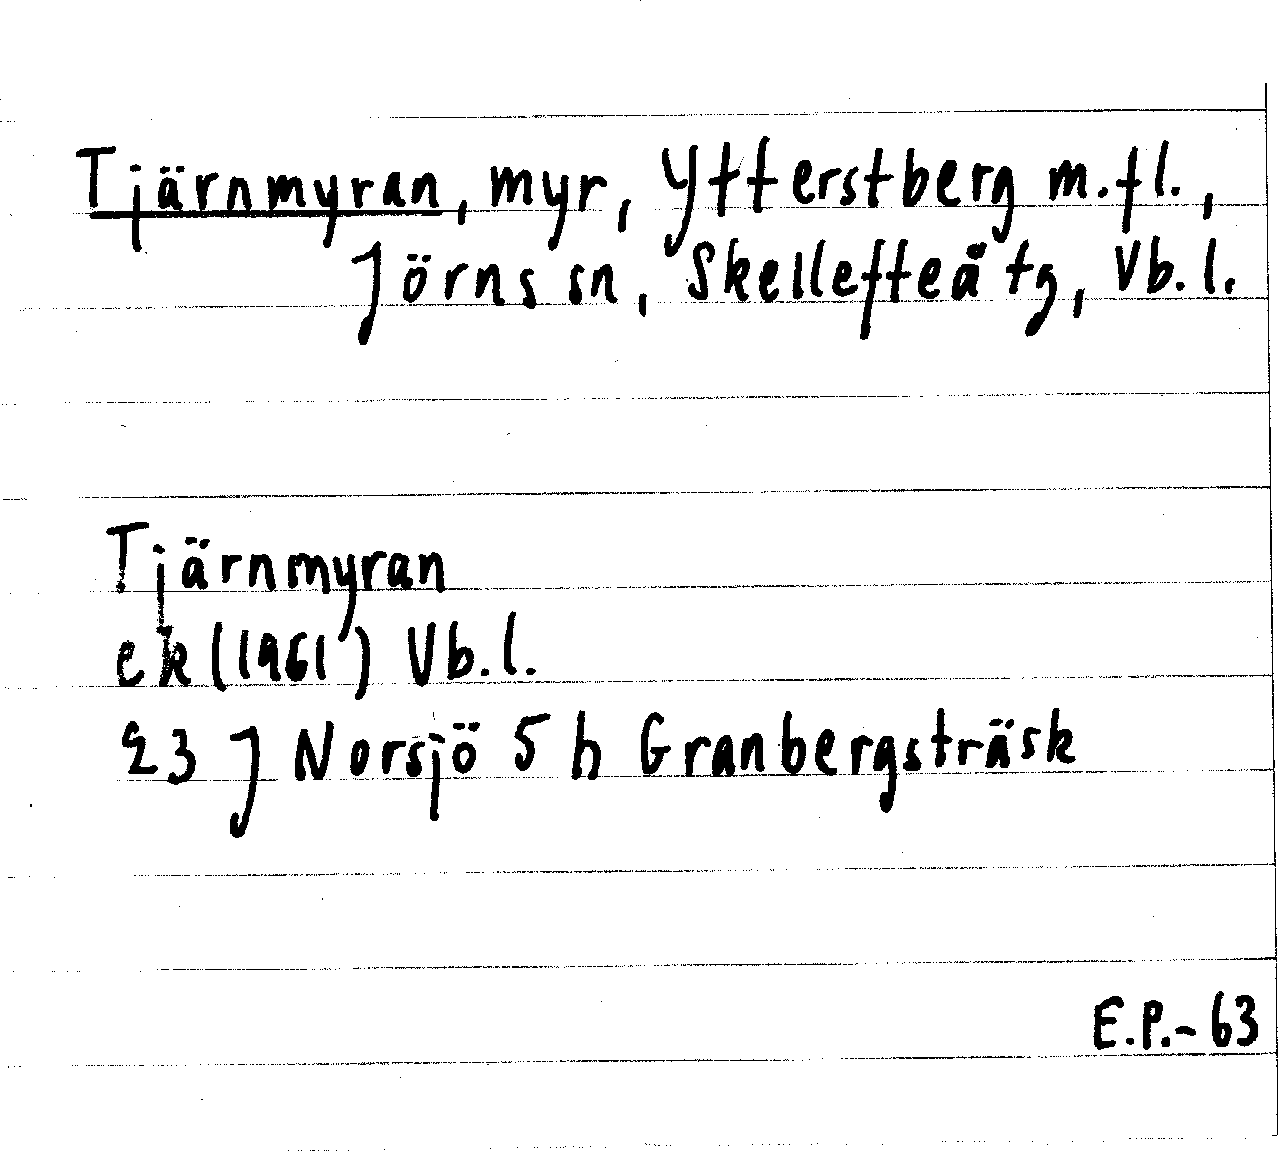 Tjärnmyran, myr, Ytterstberg m.fl.,
Jörns sn, Skellefteå tg, Vb.l.
Tjärnmyran
ek (1961) Vb.l.
23 J Norsjö 5 h Granbergsträsk
E.P.-63